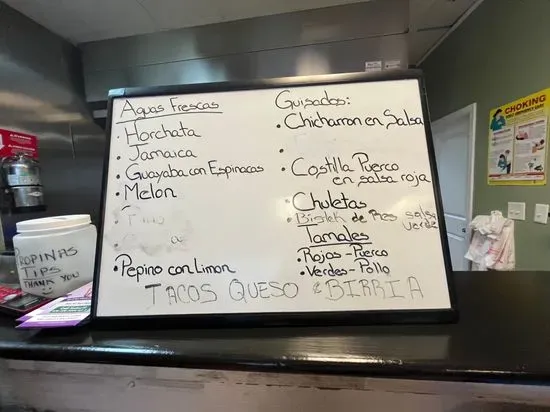 Aguas Frescas
• Horchata
• Jamaica
• Guayaba con Espinacas
• Melon
• Pepino con Limon
Guisados:
• Chicharron en Salsa
• Costilla Puerco
en salsa roja
• Chuletas
• Bistek de Res salsa
verde
Tamales
• Rojas - Puerco
• Verdes - Pollo
TACOS QUESO & BIRRIA
PROPINAS
TIPS
THANK YOU
CHOKING